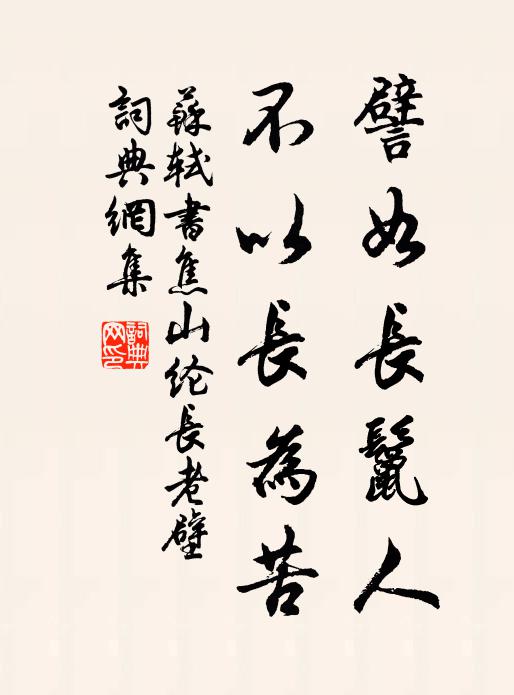 譬如長鬣人
不以長為苦
蘇軾書焦山纶長老壁
詞典網集
詞典網印